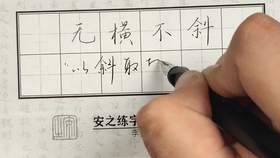 无横不斜
"以斜取
安之练字
李